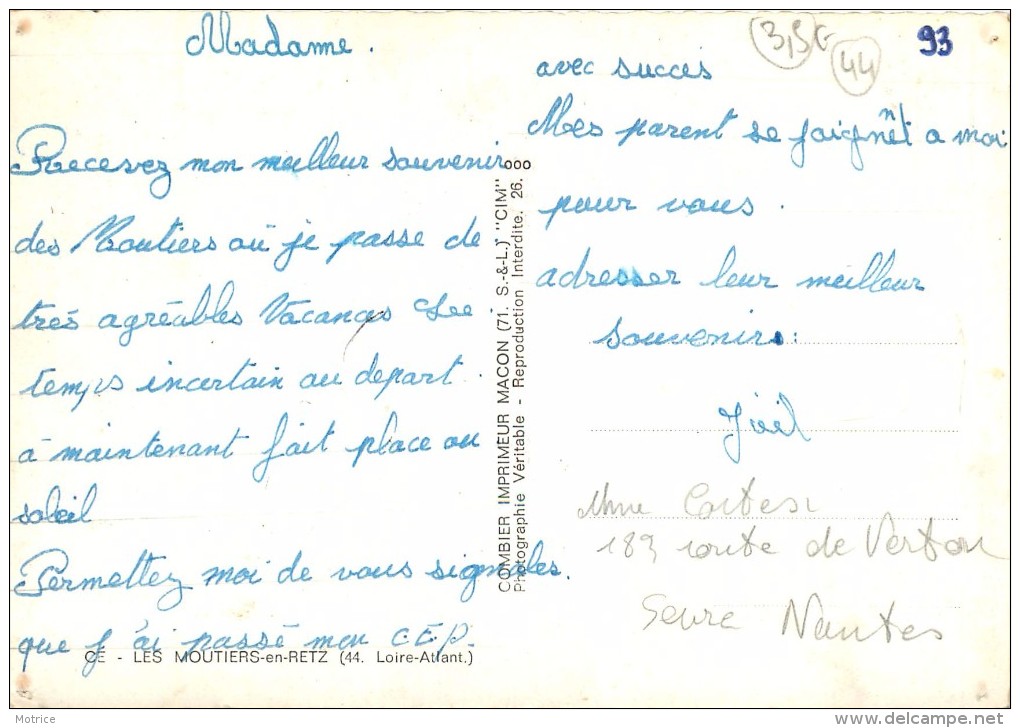 Madame.
Recevez mon meilleur souvenir
des Moutiers où je passe de
très agréables Vacances Le
temps incertain au depart
à maintenant fait place au
soleil
Permettez moi de vous signales.
que j'ai passé mon C.E.P.
avec succes
Mes parent se joignent a moi
pour vous.
adresser leur meilleur
souvenir.
Joël
Mme
189 route de Vertou
Sevre Nantes
3,5€
44
93
ooo
COMBIER IMPRIMEUR MACON (71. S.-&-L.) "CIM"
Photographie Véritable - Reproduction Interdite. 26.
CE - LES MOUTIERS-en-RETZ (44. Loire-Atlant.)
Motrice
www.delcampe.net